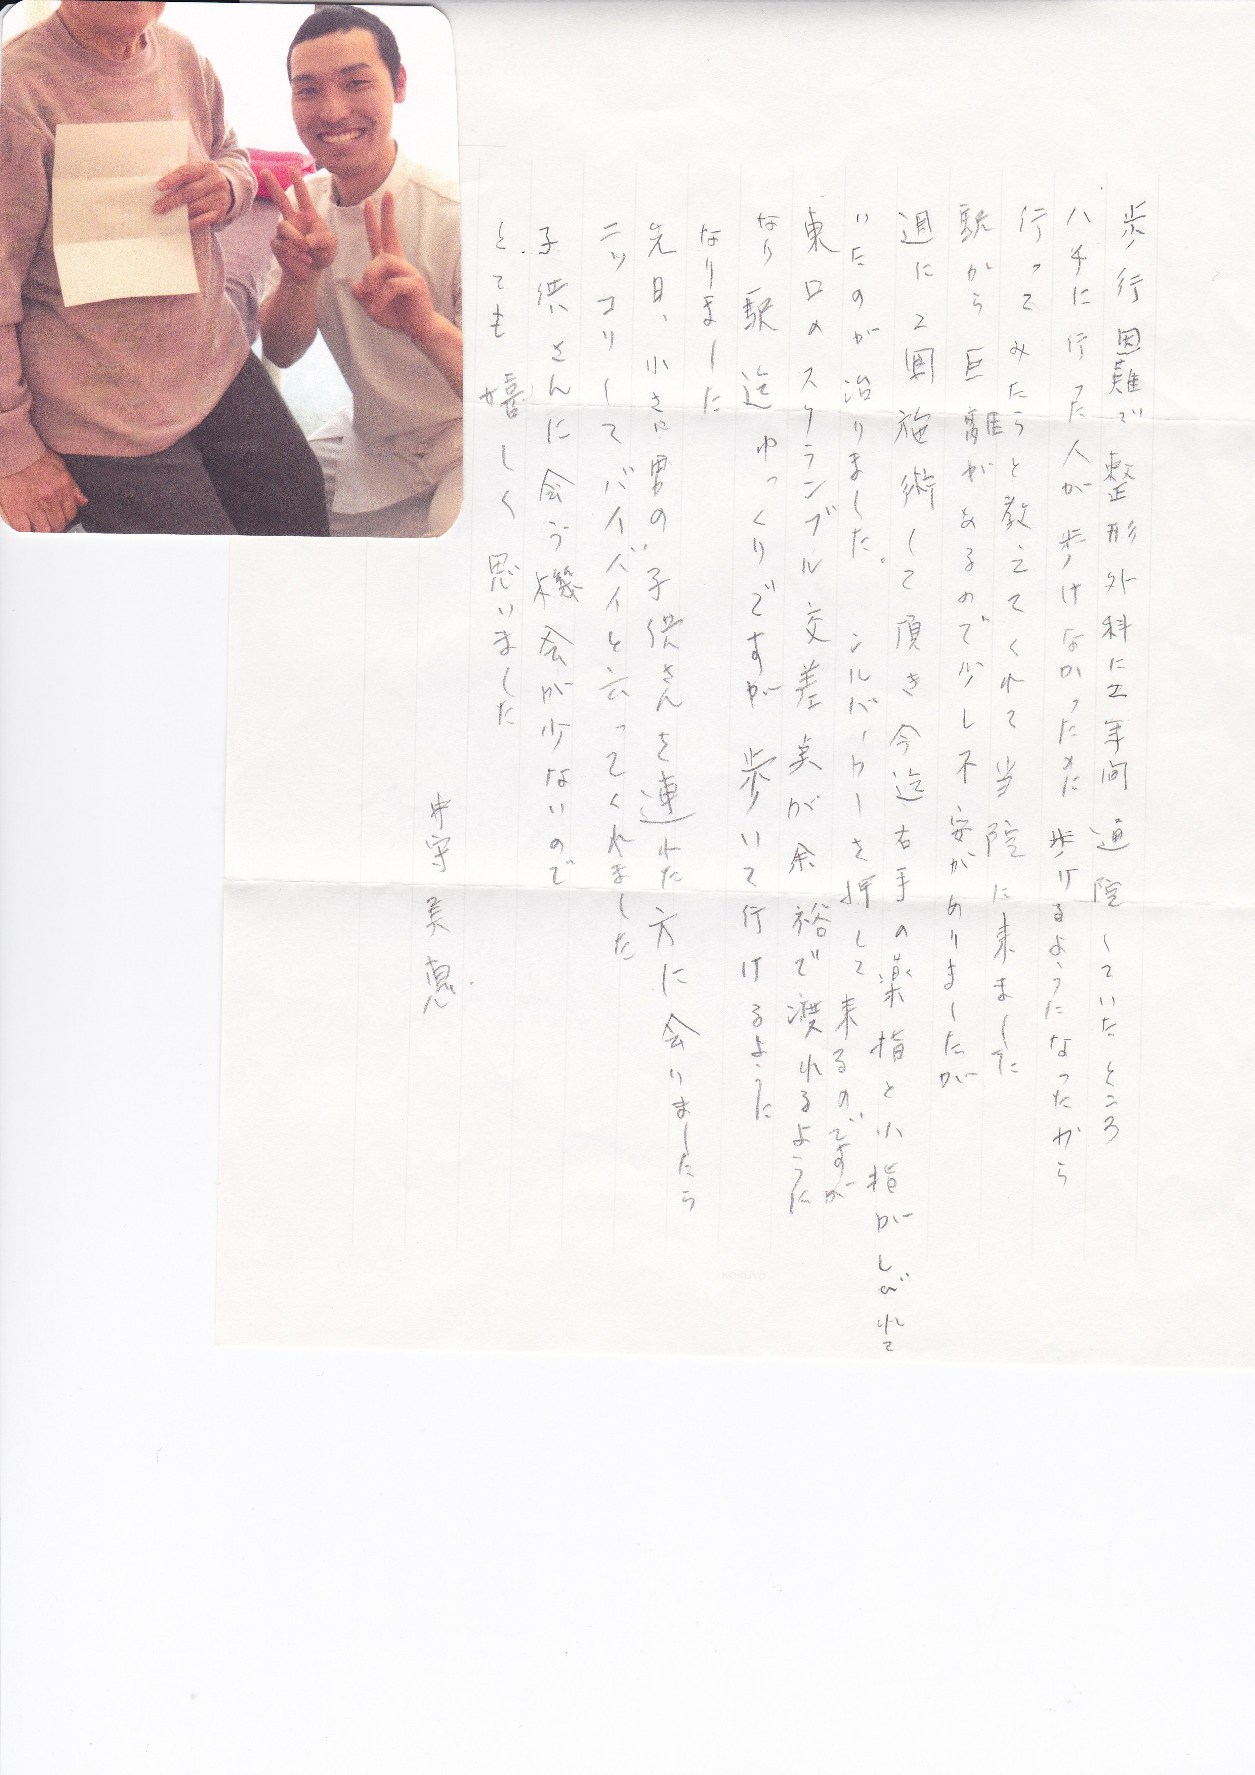 歩行困難で整形外科に二年間通院していたところ
ハチに行った人が歩けなかったのに歩けるようになったから
行ってみたらと教えてくれて当院に来ました
駅から距離があるので少し不安がありましたが
週に2回施術して頂き今迄右手の薬指と小指がしびれて
いたのが治りました。シルバーカーを押して来るのですが
東口のスクランブル交差点が余裕で渡れるように
なり駅迄ゆっくりですが歩いて行けるように
なりました
先日、小さい男の子供さんを連れた方に会いましたら
ニッコリしてバイバイと云ってくれました
子供さんに会う機会が少ないので
とても嬉しく思いました
守美恵